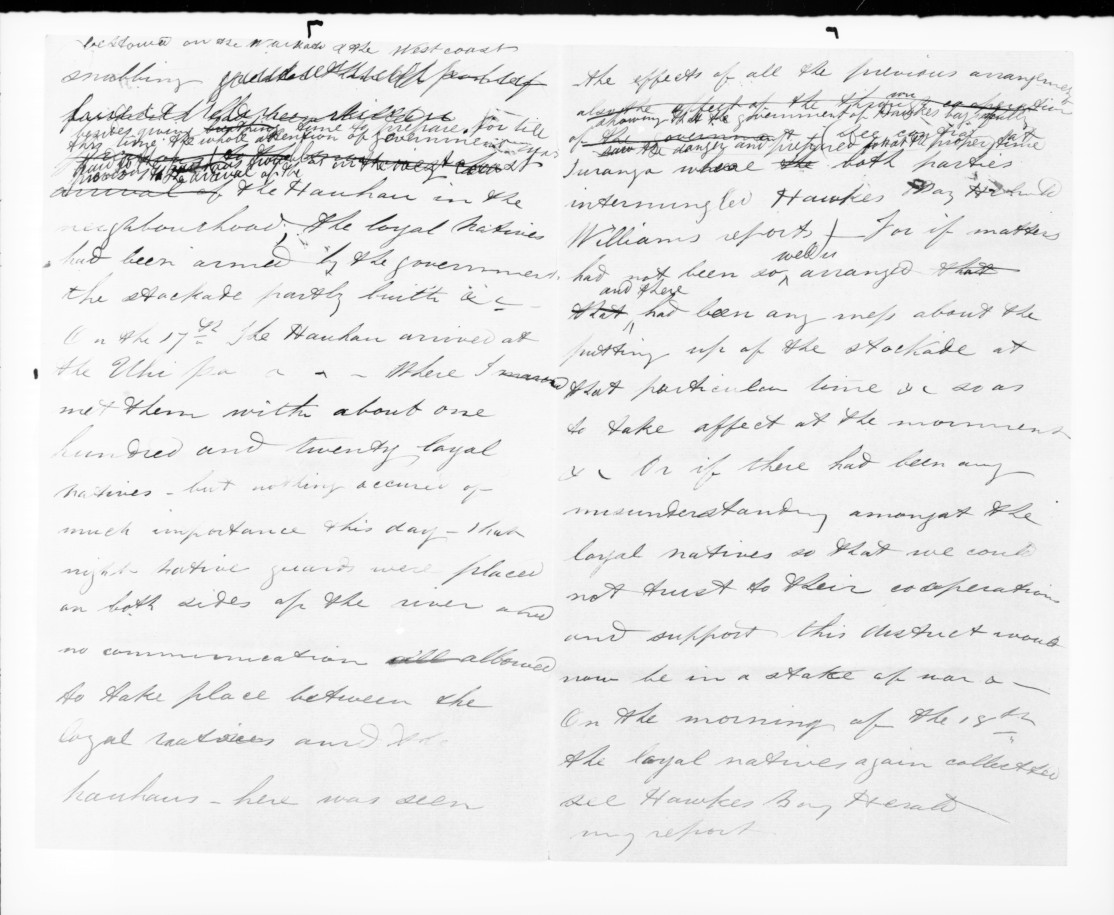 bestowed on the Waikato & the West coast
snubbing
besides giving time to prepare, for till
this time the whole attention of government was
previous to the arrival of the
arrival of the Hauhau in the
neighbourhood, the loyal Natives
had been armed by the government.
the stockade partly built &c –
On the 17th The Hauhau arrived at
the Uhi pa – – – Where I
met them with about one
hundred and twenty loyal
natives – but nothing occured of
much importance this day – That
night native guards were placed
on both sides of the river and
no communication allowed
to take place between the
loyal natives and the
hauhaus – here was seen
the effects of all the previous arrangements
along the aspect of the
showing that the government of Hawkes bay
of the government (see
saw the danger and prepared for it at the proper time
Turanga where the both parties
intermingled Hawkes Bay Herald
Williams report) For if matters
well
had not been so arranged that
and there
that had been any mess about the
putting up of the stockade at
that particular time &c so as
to take affect at the mornment
&c Or if there had been any
misunderstanding amongat the
loyal natives so that we could
not trust to their cooperation
and support this district would
now be in a state of war &c –
On the morning of the 18th
the loyal natives again collected
see Hawkes Bay Herald
my report